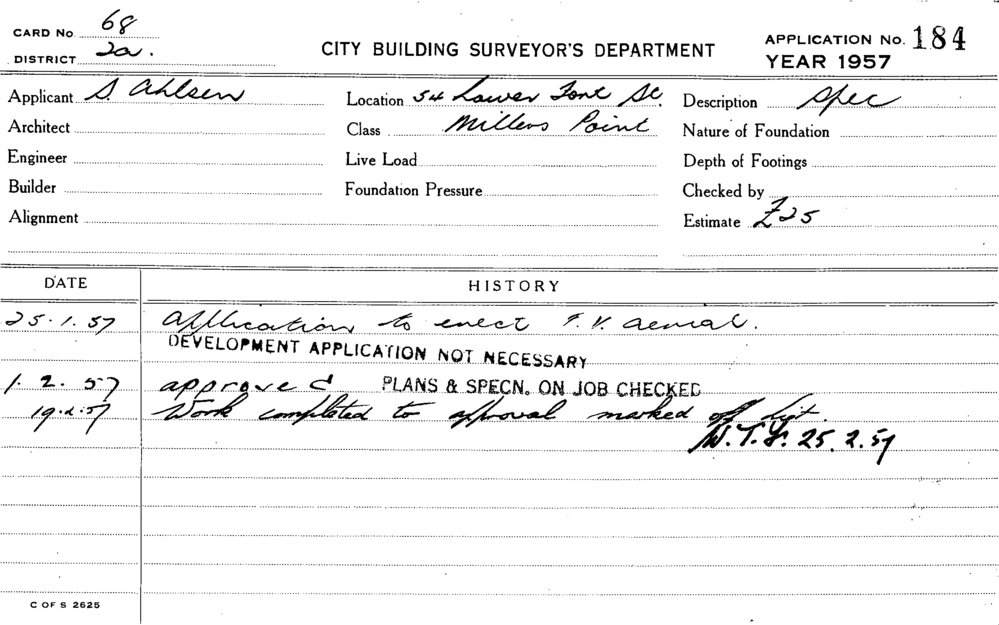 CARD No. 68
DISTRICT 2a.
CITY BUILDING SURVEYOR'S DEPARTMENT
APPLICATION No. 184
YEAR 1957
Applicant S. Ahlsen
Location 54 Lower Fort St.
Description Spec
Architect
Class Millers Point
Nature of Foundation
Engineer
Live Load
Depth of Footings
Builder
Foundation Pressure
Checked by
Alignment
Estimate £25
DATE HISTORY
25.1.57 Application to erect T.V. aerial.
DEVELOPMENT APPLICATION NOT NECESSARY
1.2.57 approved PLANS & SPECN. ON JOB CHECKED
19.2.57 Work completed to approval marked off
25.2.57
C OF S 2625